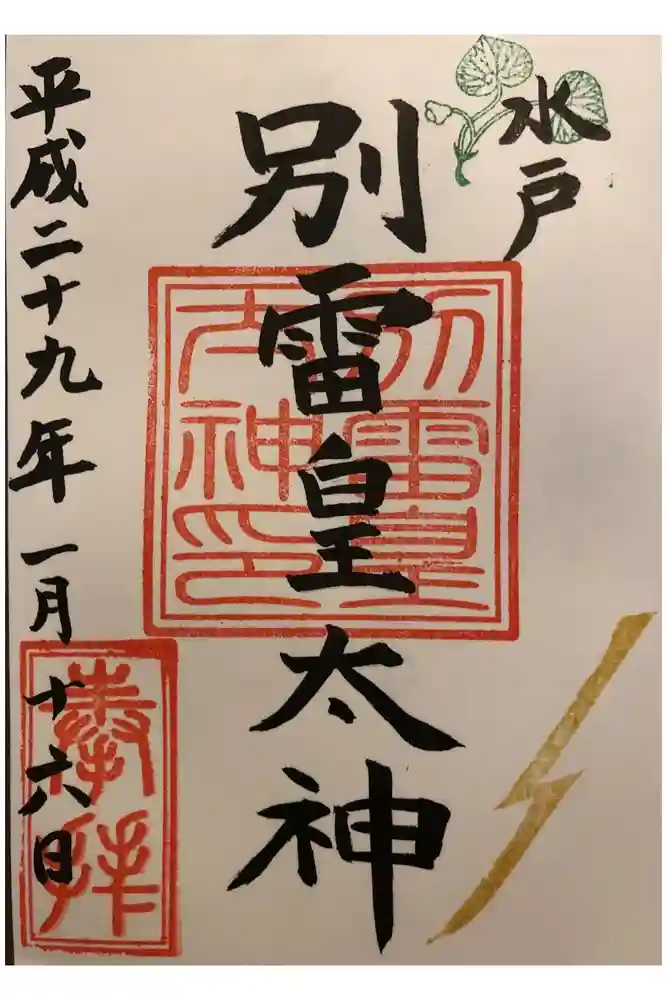 水戸
別雷皇太神
別雷皇太神印
平成二十九年一月十六日
奉拝